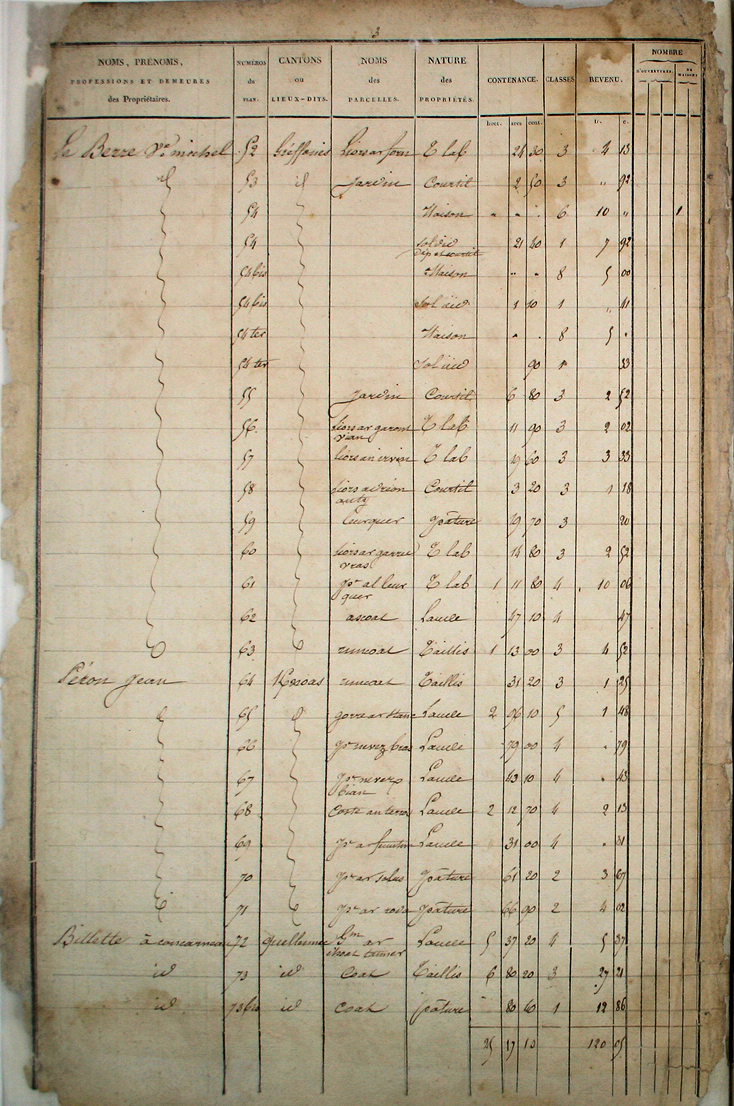 3
NOMS, PRÉNOMS, PROFESSIONS ET DEMEURES des Propriétaires. NUMÉROS du PLAN. CANTONS ou LIEUX-DITS. NOMS des PARCELLES. NATURE des PROPRIÉTÉS. CONTENANCE. CLASSES. REVENU. NOMBRE D'OUVERTURES. DE MAISONS.
hect. ares cent. fr. c.
Le Berre Ve michel 52 Liors ar forn T lab 24 30 3 4 13
id 53 id Jardin Courtil 2 50 3 " 92
54 Maison " " " 6 10 " 1
54 sol aire et courtil 21 80 1 7 92
54 bis Maison " " 8 5 00
54 bis Sol 1 10 1 " 41
54 ter Maison " " 8 5 "
54 ter Sol 90 1 33
55 Jardin Courtil 6 80 3 2 52
56 liors ar garon vian T lab 11 90 3 2 02
57 liors an T lab 19 60 3 3 33
58 liors Courtil 3 20 3 1 18
59 leurquer pâture 19 70 3 20
60 liors ar vras T lab 14 80 3 2 52
61 pc al leur quer T lab 1 11 80 4 10 06
62 ascoat Lande 47 10 4 47
63 runcoat Taillis 1 13 00 3 4 52
Péron Jean 64 runcoat Taillis 31 20 3 1 25
65 Lande 2 96 10 5 1 48
66 pc nevez bras Lande 79 00 4 " 79
67 pc nevez bian Lande 43 10 4 " 43
68 coste an Lande 2 12 70 4 2 13
69 pc ar Lande 31 00 4 " 31
70 pc ar pâture 61 20 2 3 67
71 pc ar pâture 66 90 2 4 02
Billette à concarneau 72 ar Lande 5 37 20 4 5 37
id 73 id Coat Taillis 6 80 20 3 27 21
id 73 bis id Coat pâture 80 60 1 12 86
25 17 10 120 05